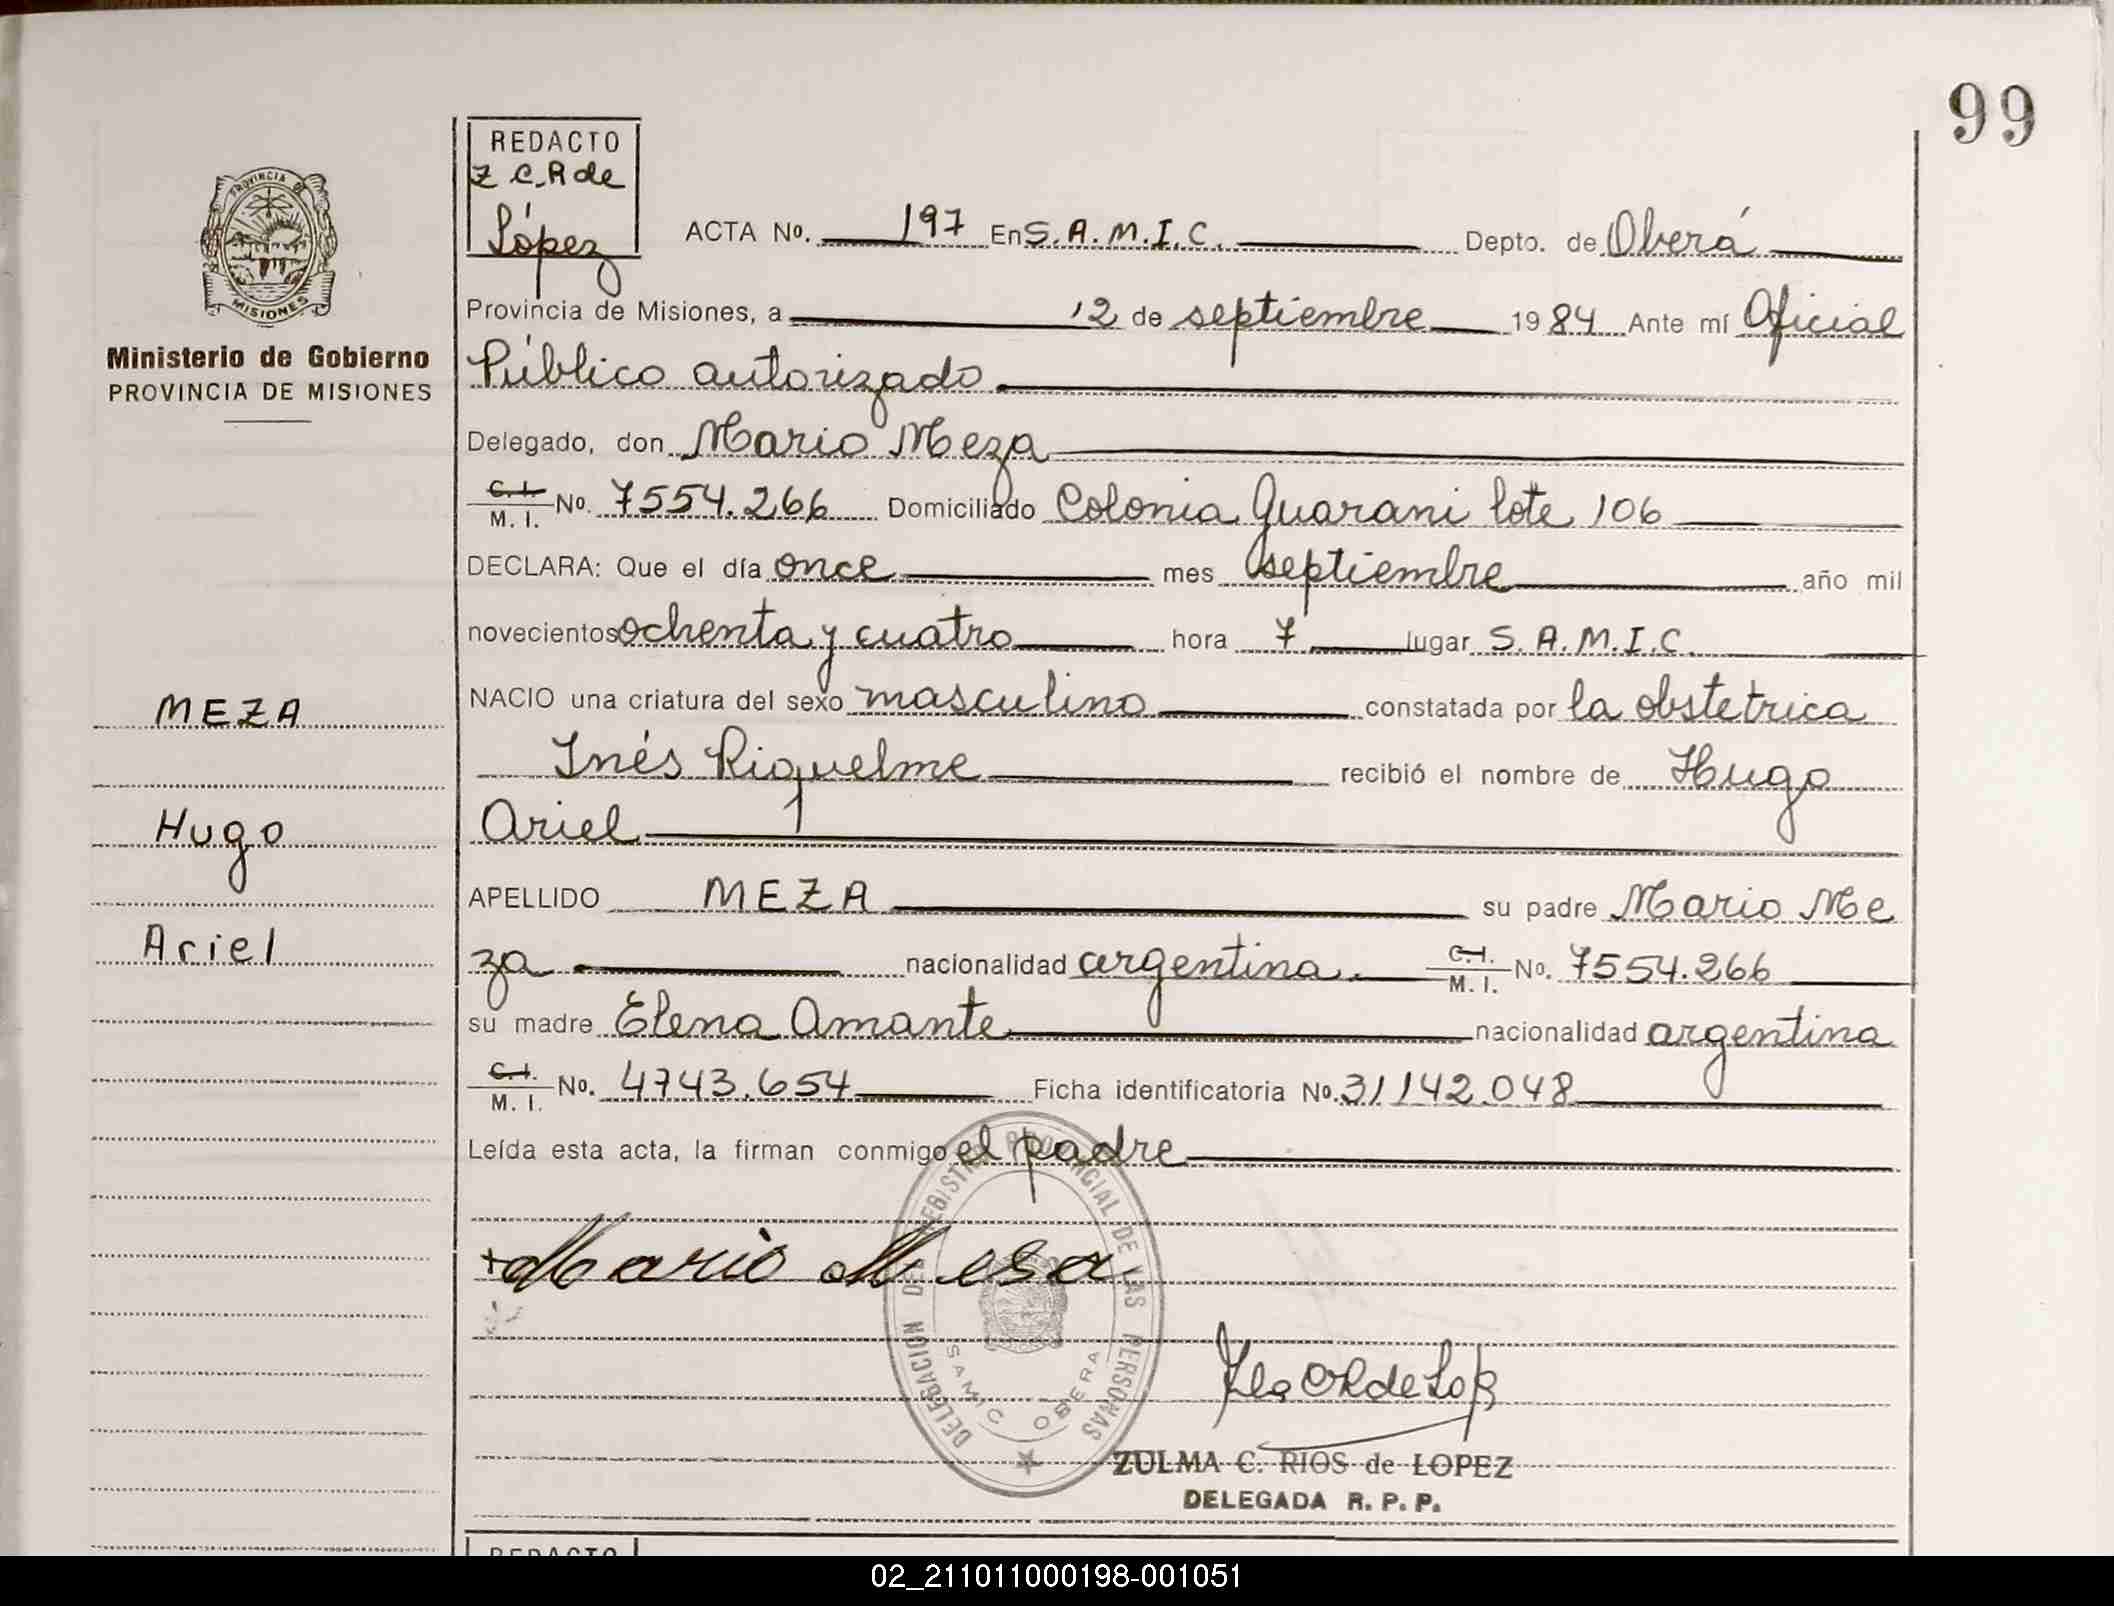 99
REDACTO
Z C. R de
López
PROVINCIA DE
MISIONES
Ministerio de Gobierno
PROVINCIA DE MISIONES
ACTA No. 197 En S. A. M. I. C. Depto. de Oberá
Provincia de Misiones, a 12 de septiembre 1984 Ante mí Oficial
Público autorizado
Delegado, don Mario Meza
C. I. M. I. No. 7554.266 Domiciliado Colonia Guarani lote 106
DECLARA: Que el día once mes septiembre año mil
novecientos ochenta y cuatro hora 7 lugar S. A. M. I. C.
NACIO una criatura del sexo masculino constatada por la obstetrica
Inés Riquelme recibió el nombre de Hugo
Ariel
APELLIDO MEZA su padre Mario Me
za nacionalidad argentina. C. I. M. I. No. 7554.266
su madre Elena Amante nacionalidad argentina
C. I. M. I. No. 4743.654 Ficha identificatoria No. 31142.048
Leída esta acta, la firman conmigo el padre
MEZA
Hugo
Ariel
+Mario Mesa
DELEGACION DEL REGISTRO PROVINCIAL DE LAS PERSONAS
SAMIC OBERA
ZULMA C. RIOS de LOPEZ
DELEGADA R. P. P.
REDACTO
02_211011000198-001051